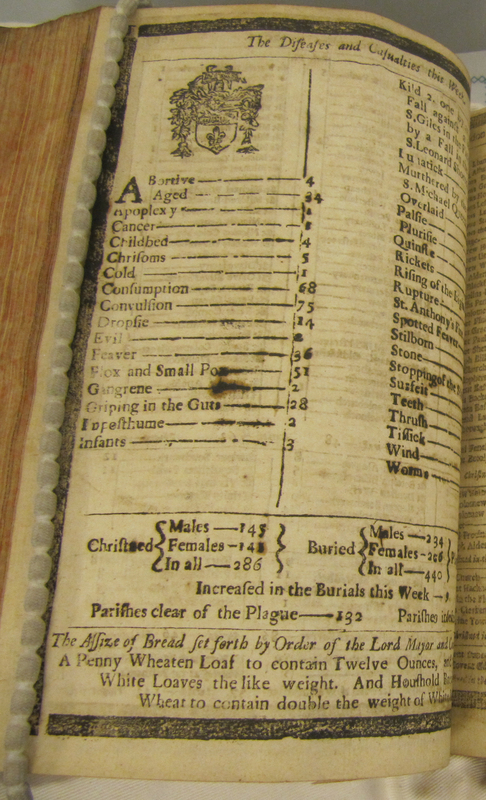 The Diſeaſes and Caſualties this Week.
ABortive 4
Aged 34
Apoplexy
Cancer
Childbed 4
Chriſoms 5
Cold 1
Conſumption 68
Convulſion 75
Dropſie 14
Evil
Feaver 36
Flox and Small Pox 51
Gangrene 2
Griping in the Guts 28
Impoſthume 2
Infants 3
Kil'd 2, one
Fall againſt
S. Giles in the
by a Fall
S. Leonard
Lunatick
Murthered by
S. Michael
Overlaid
Palſie
Pluriſie
Quinſie
Rickets
Riſing of the
Rupture
St. Anthony's
Spotted Feaver
Stilborn
Stone
Stopping of the
Surfeit
Teeth
Thruſh
Tiſſick
Wind
Worms
Chriſtned { Males 145 Females 141 In all 286 }
Buried { Males 234 Females 206 In all 440 }
Increaſed in the Burials this Week
Pariſhes clear of the Plague 132 Pariſhes
The Aſſize of Bread ſet forth by Order of the Lord Mayor and
A Penny Wheaten Loaf to contain Twelve Ounces,
White Loaves the like weight. And Houſhold
Wheat to contain double the weight of